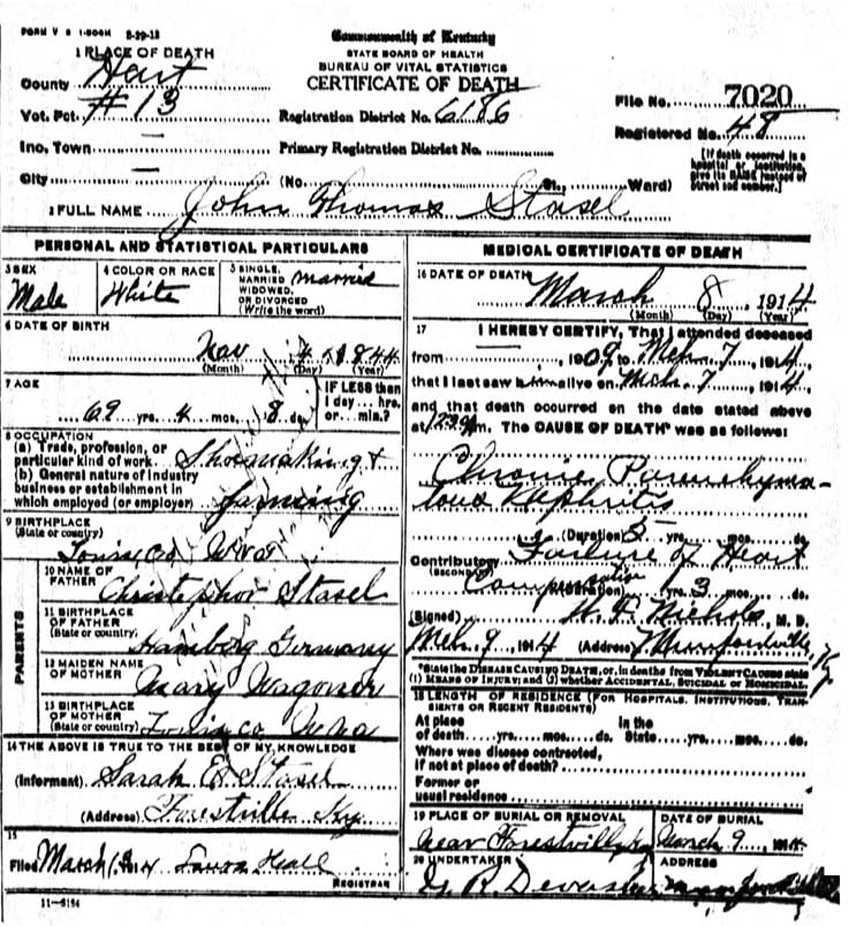 FORM V S 1-500M 8-29-13
Commonwealth of Kentucky
STATE BOARD OF HEALTH
BUREAU OF VITAL STATISTICS
CERTIFICATE OF DEATH
1 PLACE OF DEATH
County Hart
Vot. Pct. #13
Registration District No. 6186
File No. 7020
Registered No. 48
Inc. Town —
Primary Registration District No.
[If death occurred in a hospital or institution, give its NAME instead of street and number.]
City —
(No. St., Ward)
2 FULL NAME John Thomas Stasel
PERSONAL AND STATISTICAL PARTICULARS
3 SEX
Male
4 COLOR OR RACE
White
5 SINGLE, MARRIED WIDOWED, OR DIVORCED (Write the word)
married
6 DATE OF BIRTH
Nov 4 1844
(Month) (Day) (Year)
7 AGE
69 yrs. 4 mos. 8 ds.
IF LESS than 1 day... hrs. or... min.?
8 OCCUPATION
(a) Trade, profession, or particular kind of work Shoemaking &
(b) General nature of industry business or establishment in which employed (or employer) farming
9 BIRTHPLACE
(State or country)
PARENTS
10 NAME OF FATHER
Christopher Stasel
11 BIRTHPLACE OF FATHER
(State or country)
Hamberg Germany
12 MAIDEN NAME OF MOTHER
Mary Wagoner
13 BIRTHPLACE OF MOTHER
(State or country)
14 THE ABOVE IS TRUE TO THE BEST OF MY KNOWLEDGE
(Informant) Sarah E Stasel
(Address) Forestville Ky
15
Filed March 1914 Laura Hall
REGISTRAR
11-3184
MEDICAL CERTIFICATE OF DEATH
16 DATE OF DEATH
March 8, 1914
(Month) (Day) (Year)
17 I HEREBY CERTIFY, That I attended deceased
from , 1909 to Mch. 7, 1914,
that I last saw him alive on Mch. 7, 1914,
and that death occurred on the date stated above
at m. The CAUSE OF DEATH* was as follows:
Chronic Parenchyma-
tous Nephritis
(Duration) 5 yrs. mos. ds.
Contributory Failure of Heart
(SECONDARY)
Compensation
(Duration) yrs. 3 mos. ds.
(Signed) H. F. Nichols, M. D.
Mch. 9, 1914 (Address) Munfordville, Ky
*State the DISEASE CAUSING DEATH, or, in deaths from VIOLENT CAUSES state
(1) MEANS OF INJURY; and (2) whether ACCIDENTAL, SUICIDAL or HOMICIDAL.
18 LENGTH OF RESIDENCE (FOR HOSPITALS, INSTITUTIONS, TRANSIENTS OR RECENT RESIDENTS)
At place of death yrs. mos. ds.
In the State yrs. mos. ds.
Where was disease contracted,
if not at place of death?
Former or
usual residence
19 PLACE OF BURIAL OR REMOVAL
near Forestville Ky
DATE OF BURIAL
March 9, 1914
20 UNDERTAKER
ADDRESS